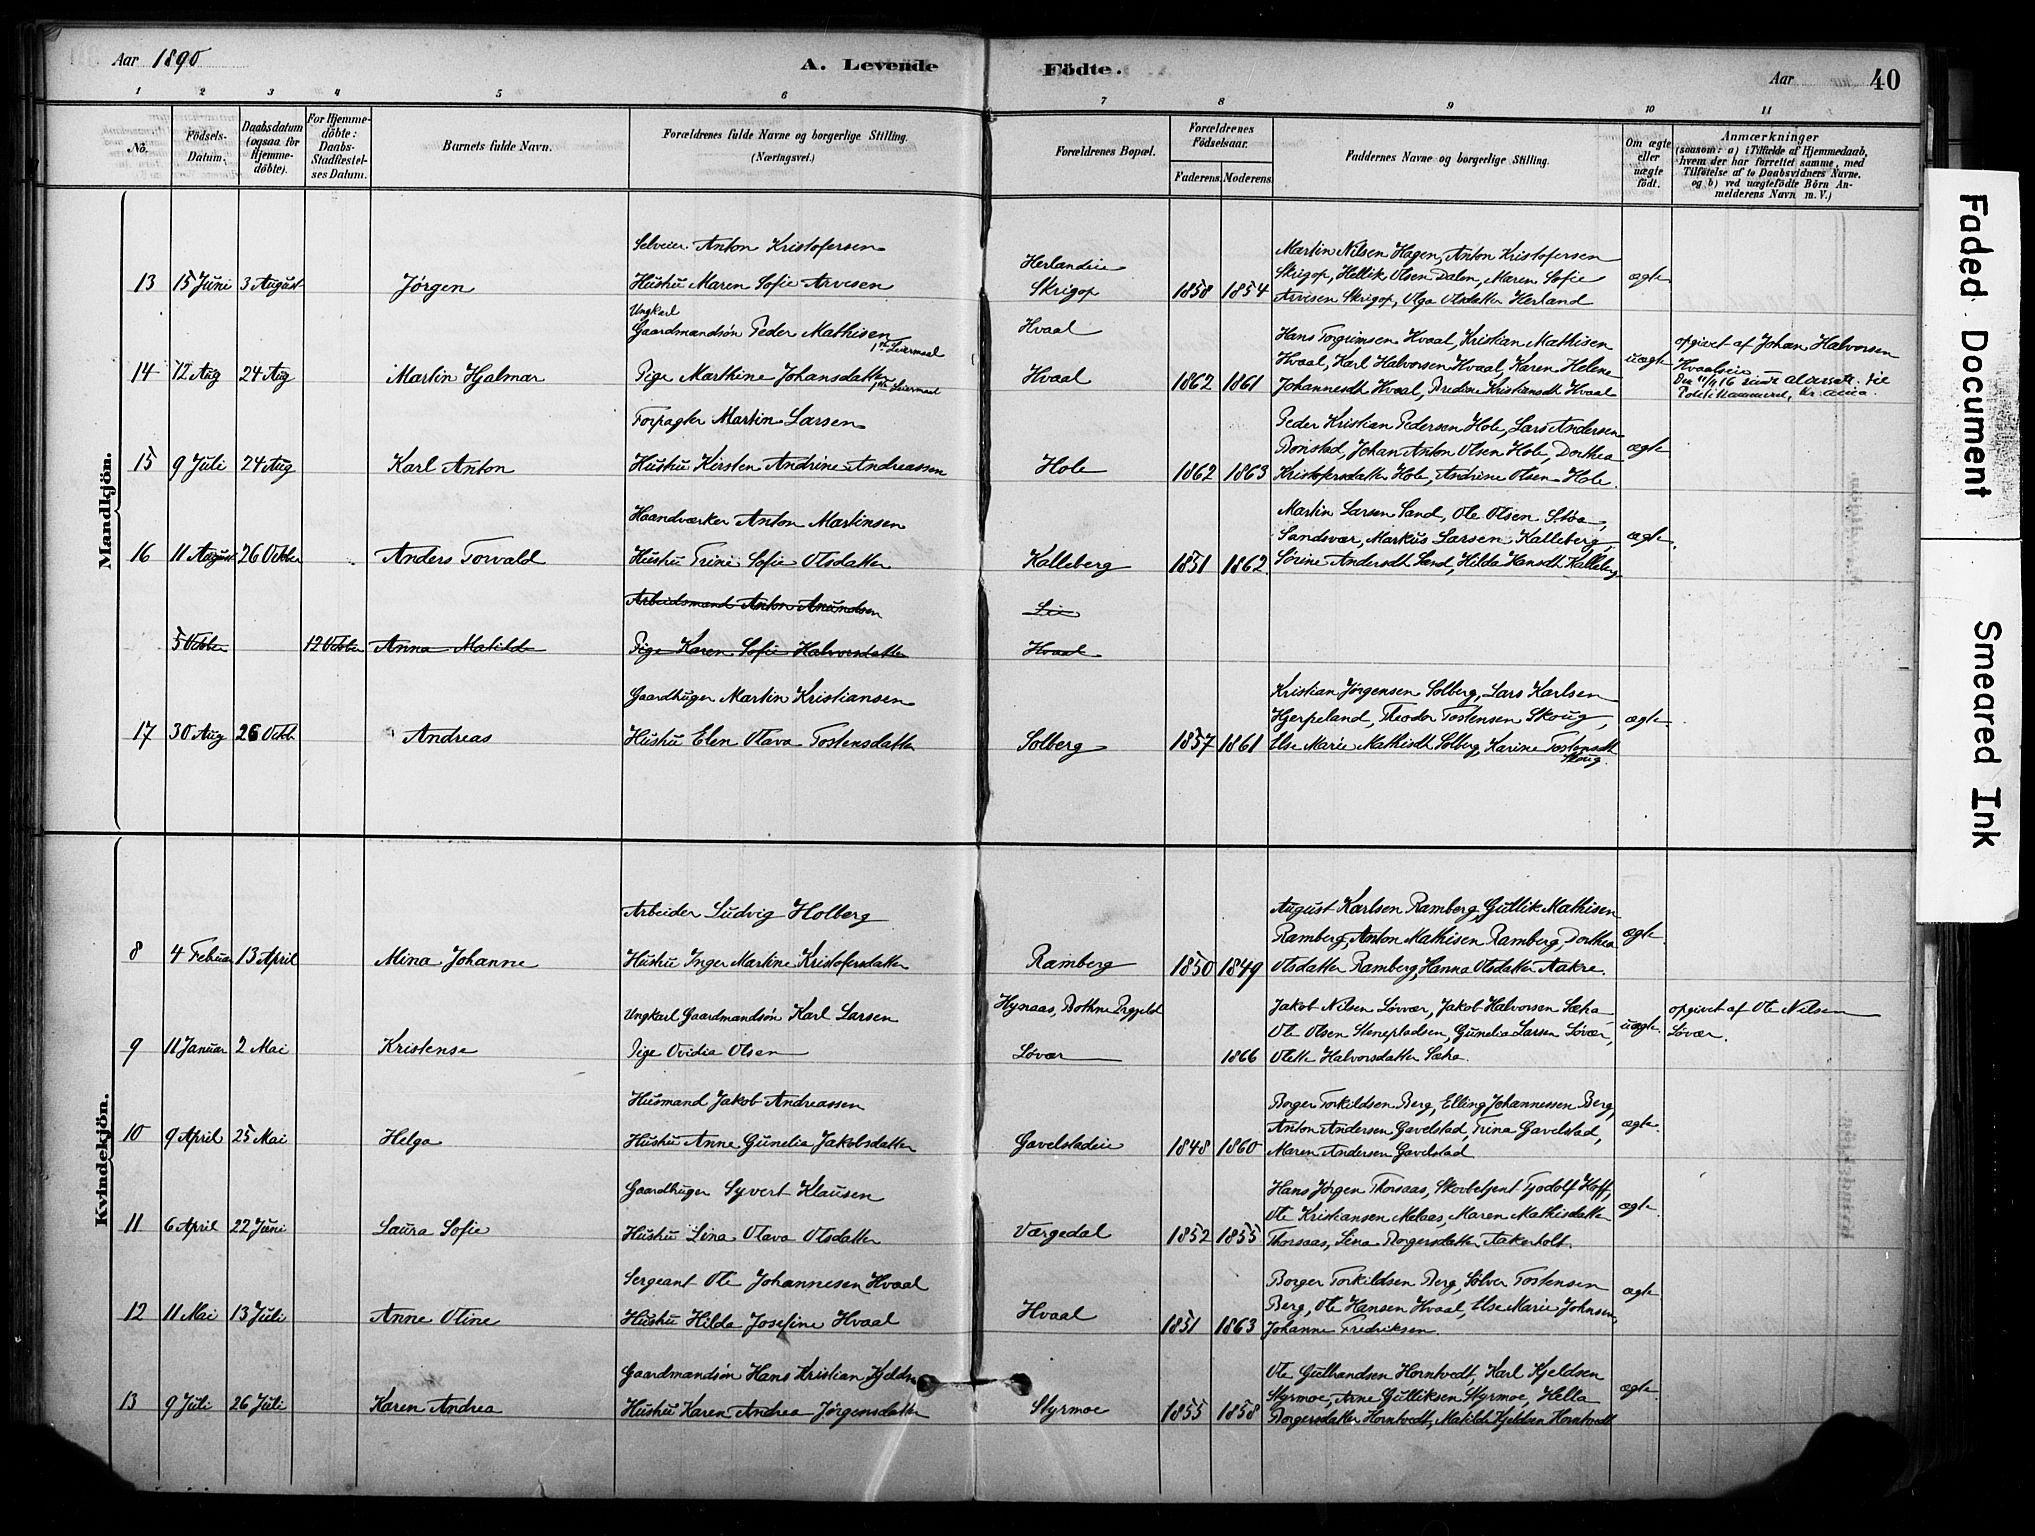 Aar 1890
A. Levende Födte.
Aar 40
1 2 3 4 5 6 7 8 9 10 11
No.
Födsels-Datum.
Daabsdatum (ogsaa for Hjemme-döbte).
For Hjemme-döbte: Daabs-Stadfæstel-ses Datum.
Barnets fulde Navn.
Forældrenes fulde Navne og borgerlige Stilling.
(Næringsvei.)
Forældrenes Bopæl.
Forældrenes Födselsaar.
Faderens. Moderens.
Faddernes Navne og borgerlige Stilling.
Om ægte eller uægte födt.
Anmærkninger
(saasom: a) i Tilfælde af Hjemmedaab,
hvem der har forrettet samme, med
Tilföielse af to Daabsvidners Navne.
og b) ved uægtefödte Börn An-
melderens Navn m. V.)
Mandkjön.
Selveier Anton Kristofersen
Herlandeie
Martin Nilsen Hagen, Anton Kristofersen
Skrigop, Hellik Olsen Dalen, Maren Sofie
13 15 Juni 3 August Jørgen Hustru Maren Sofie Arvesen Skrigop 1858 1854 Arvesen Skrigop, Olga Olsdatter Herland ægte
Ungkarl
Gaardmandsøn Peder Mathisen
1ste Leiermaal
Hvaal
Hans Torgrimsen Hvaal, Kristian Mathisen
Hvaal, Karl Halvorsen Hvaal, Karen Helene
14 12 Aug 24 Aug Martin Hjalmar Pige Marthine Johansdatter 1ste Leiermaal Hvaal 1862 1861 Johannesdt Hvaal, Bredine Kristiansdt Hvaal uægte
opgivet af Johan Halvorsen
Hvaalseie
Forpagter Martin Larsen
Peder Kristian Pedersen Hole, Lars Andersen
Bonstad, Johan Anton Olsen Hole, Dorthea
15 9 Juli 24 Aug Karl Anton Hustru Kirsten Andrine Andreassen Hole 1862 1863 Kristofersdatter Hole, Andrine Olsen Hole. ægte
Haandværker Anton Martinsen
Martin Larsen Sand, Ole Olsen Støa,
Sandsvær, Markus Larsen Kalleberg,
16 11 August 26 Octbr Anders Torvald Hustru Trine Sofie Olsdatter Kalleberg 1851 1862 Sørine Andersdt Sand, Hilda Hansdt Kalleberg ægte.
Arbeidsmand Anton Amundsen
Lie
5 October 12 Octobr Anna Matilde Pige Karen Sofie Halvorsdatter Hvaal
Gaardbruger Martin Kristiansen
Kristian Jørgensen Solberg, Lars Karlsen
Hjerpeland, Theodor Tostensen Skoug,
17 30 Aug 26 Octb Andreas Hustru Elen Olava Tostensdatter Solberg 1857 1861 Else Marie Mathisdt Solberg, Karine Tostensdt ægte
Skoug.
Kvindekjön.
Arbeider Ludvig Holberg
August Karlsen Ramberg, Gullik Mathisen
Ramberg, Anton Mathisen Ramberg, Dorthea
8 4 Februar 13 April Mina Johanne Hustru Inger Martine Kristofersdatter Ramberg 1850 1849 Olsdatter Ramberg, Hanna Olsdatter Aakre. ægte
Ungkarl Gaardmandsøn Karl Larsen
Hynaas, Bothne Prgjeld
Jakob Nilsen Løvær, Jakob Halvorsen Sæha
Ole Olsen Stenepladsen, Gunelia Larsen Løvær,
9 11 Januar 2 Mai Kristense Pige Ovidia Olsen Løvær 1866 Olette Halvorsdatter Sæha. uægte.
opgivet af Ole Nilsen
Løvær.
Husmand Jakob Andreassen
Borger Torkildsen Berg, Elling Johannessen Berg,
Anton Andersen Gavelstad, Trina Gavelstad,
10 9 April 25 Mai Helga Hustru Anne Gunelia Jakobsdatter Gavelstadeie 1848 1860 Maren Andersen Gavelstad ægte.
Gaardbruger Syvert Klausen
Hans Jørgen Thorsaas, Skovbetjent Tjodolf Hoff,
Ole Kristiansen Melaas, Maren Mathisdatter
11 6 April 22 Juni Laura Sofie Hustru Lina Olava Olsdatter Værgedal 1852 1855 Thorsaas, Lina Borgersdatter Aakerholt. ægte.
Sergeant Ole Johannesen Hvaal
Borger Torkildsen Berg, Sølver Tostensen
Berg, Ole Hansen Hvaal, Else Marie Johnsen,
12 11 Mai 13 Juli Anne Otine Hustru Hilda Josefine Hvaal Hvaal 1851 1863 Johanne Fredriksen. ægte
Gaardmandsøn Hans Kristian Kjelds
Ole Gulbrandsen Horntvedt, Karl Kjeldsen
Styrmoe, Arne Gulliksen Styrmoe, Hella
13 9 Juli 26 Juli Karen Andrea Hustru Karen Andrea Jørgensdatter Styrmoe 1855 1858 Borgersdatter Horntvedt, Matilde Kjeldsen Horntvedt ægte
Faded Document
Smeared Ink